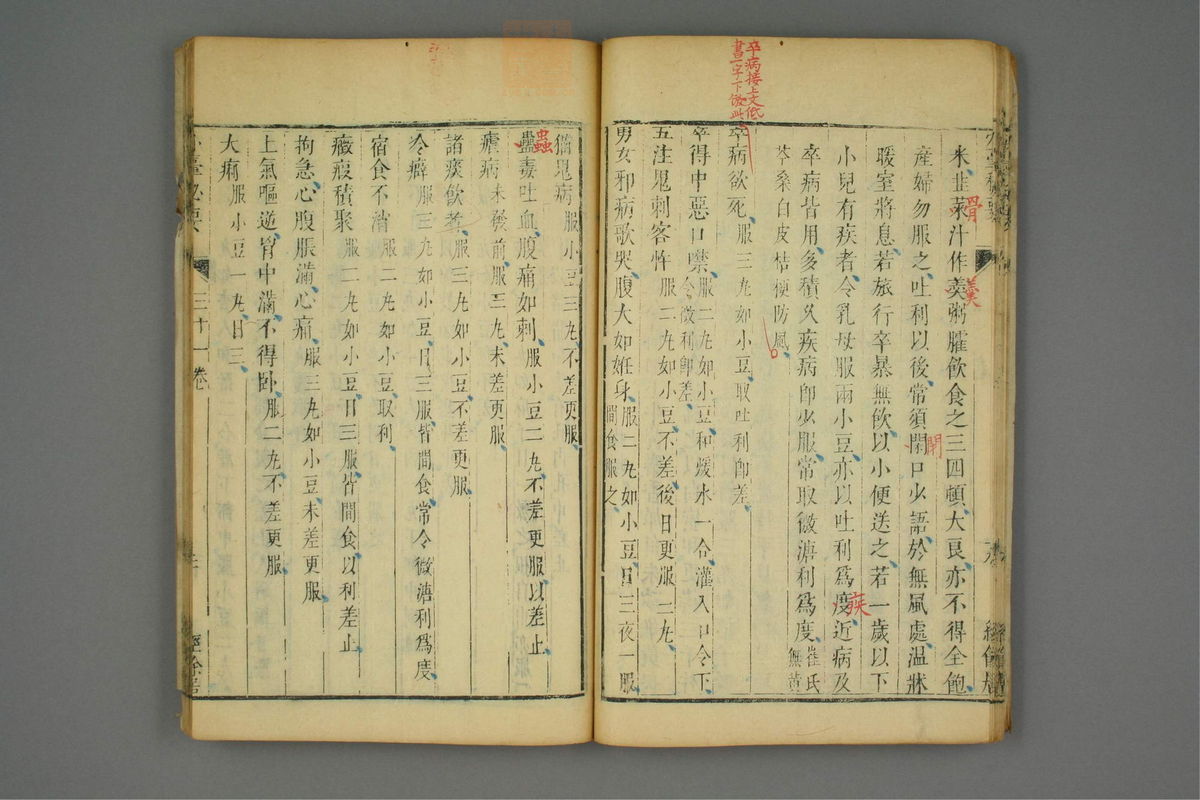 卒病接上文低
書一字下倣此
米韭菜汁作羹粥臛飲食之三四頓大良亦不得全飽
骨
羹
產婦勿服之吐利以後常須閑口少語於無風處溫牀
閉
暖室將息若旅行卒暴無飲以小便送之若一歲以下
小兒有疾者令乳母服兩小豆亦以吐利爲度近病及
疾
卒病皆用多積久疾病即少服常取微溏利爲度崔氏無黃
芩桑白皮桔梗防風
卒病欲死服三丸如小豆取吐利即差
卒得中惡口噤服二丸如小豆和煖水一合灌入口令下
令微利即差
五注鬼刺客忤服二丸如小豆不差後日更服三丸
男女邪病歌哭腹大如妊身服二丸如小豆日三夜一服
間食服之
猫鬼病服小豆三丸不差更服
蠱毒吐血腹痛如刺服小豆二丸不差更服以差止
蟲
瘧病未發前服三丸未差更服
諸痰飲者服三丸如小豆不差更服
冷癖服三丸如小豆日三服皆間食常令微溏利爲度
宿食不消服二丸如小豆取利
癥瘕積聚服二丸如小豆日三服皆間食以利差止
拘急心腹脹滿心痛服三丸如小豆未差更服
上氣嘔逆胷中滿不得卧服二丸不差更服
大痢服小豆一丸日三
三十一卷
經餘居